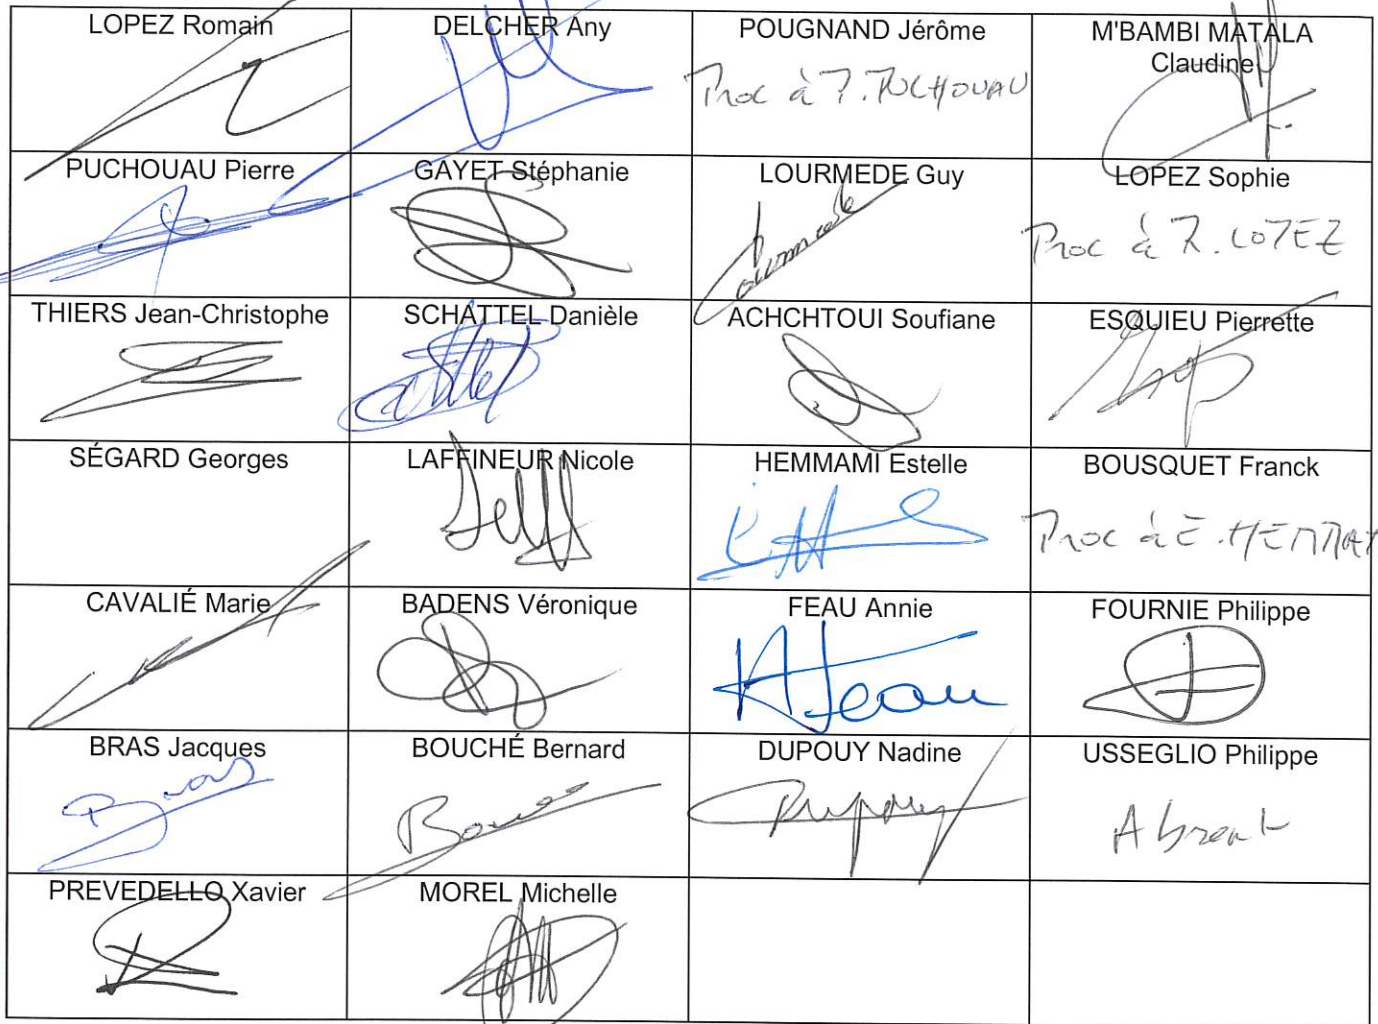 LOPEZ Romain
DELCHER Any
POUGNAND Jérôme
M'BAMBI MATALA
Claudine
Proc à P. PUCHOUAU
PUCHOUAU Pierre
GAYET Stéphanie
LOURMEDE Guy
LOPEZ Sophie
Lourmede
Proc à R. LOPEZ
THIERS Jean-Christophe
SCHATTEL Danièle
ACHCHTOUI Soufiane
ESQUIEU Pierrette
SÉGARD Georges
LAFFINEUR Nicole
HEMMAMI Estelle
BOUSQUET Franck
Proc à E. HEMMA
CAVALIÉ Marie
BADENS Véronique
FEAU Annie
FOURNIE Philippe
A Feau
BRAS Jacques
BOUCHÉ Bernard
DUPOUY Nadine
USSEGLIO Philippe
Bras
Dupouy
Absent
PREVEDELLO Xavier
MOREL Michelle